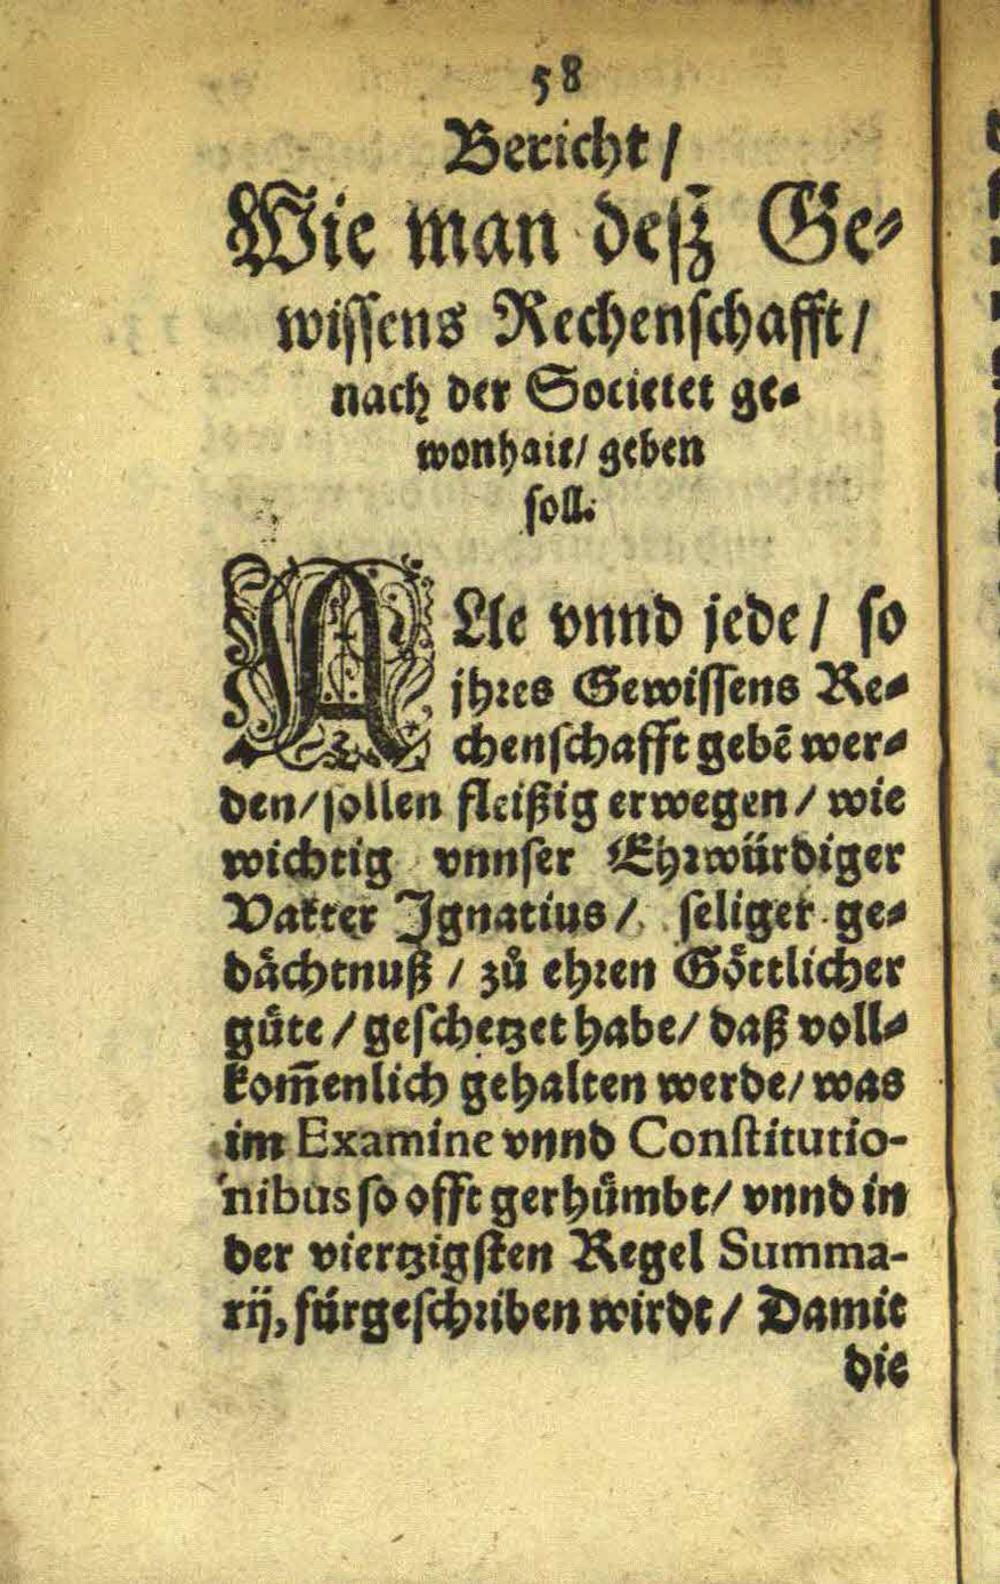 58
Bericht /
Wie man deß Ge-
wiſſens Rechenſchafft /
nach der Societet ge-
wonhait / geben
ſoll.
ALle vnnd jede / ſo
jhres Gewiſſens Re-
chenſchafft gebẽ wer-
den / ſollen fleißig erwegen / wie
wichtig vnnſer Ehrwürdiger
Vatter Ignatius / ſeliger ge-
dåchtnuß / zů ehren Göttlicher
gůte / geſchetzet habe / daß voll-
kom̃enlich gehalten werde / was
im Examine vnnd Conſtitutio-
nibus ſo offt gerhůmbt / vnnd in
der viertzigſten Regel Summa-
rij, fürgeſchriben wirdt / Damit
die